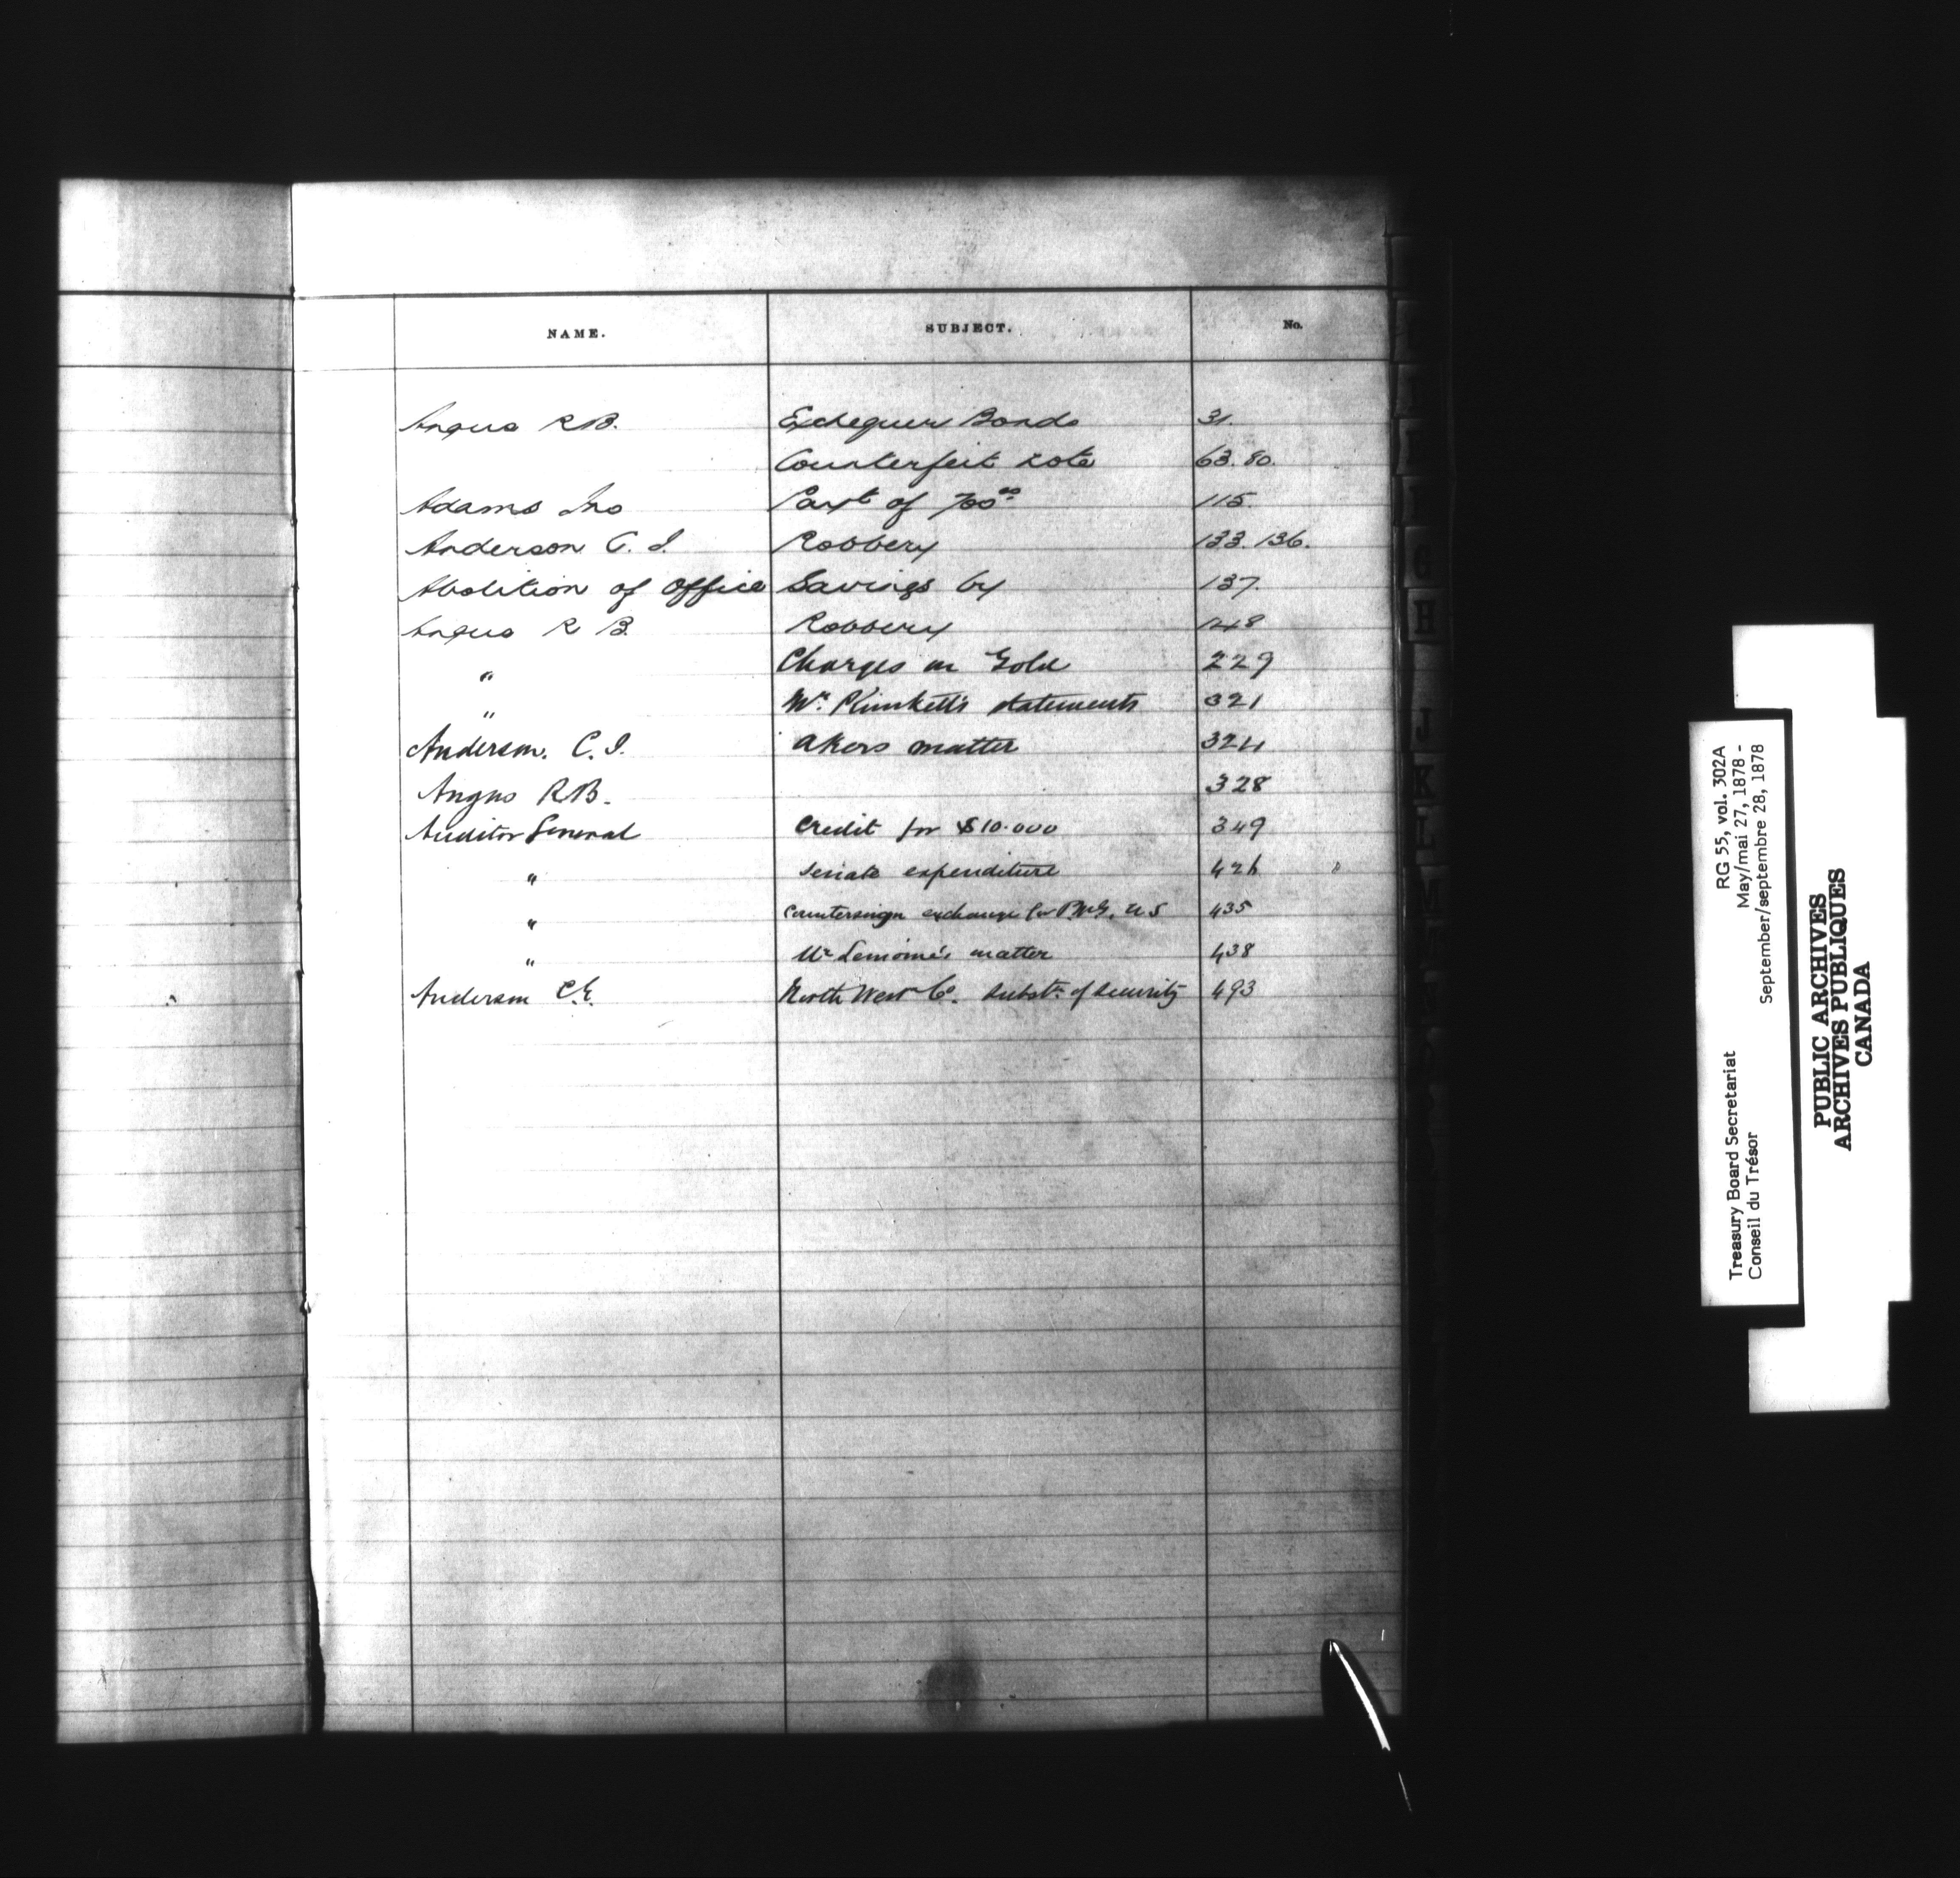 NAME. SUBJECT. No.
Angus R B. Exchequer Bonds 31.
Counterfeit note 63. 80.
Adams Jno Part of 700⁰⁰ 115.
Anderson C. I. Robbery 133. 136.
Abolition of Office Savings by 137.
Angus R B. Robbery 148
" Charges on Gold 229
" Mr. statements 321
Anderson. C. I. Akers matter 324
Angus R B. 328
Auditor General Credit for $10.000 349
" Senate expenditure 426
" Countersign exchange for P.M.G. U S 435
" Mr Lemoine's matter 438
Anderson C. E. North West Co. Substn. of Security 493
G
H
J
K
L
M
RG 55, vol. 302A
May/mai 27, 1878 -
September/septembre 28, 1878
Treasury Board Secretariat
Conseil du Trésor
PUBLIC ARCHIVES
ARCHIVES PUBLIQUES
CANADA